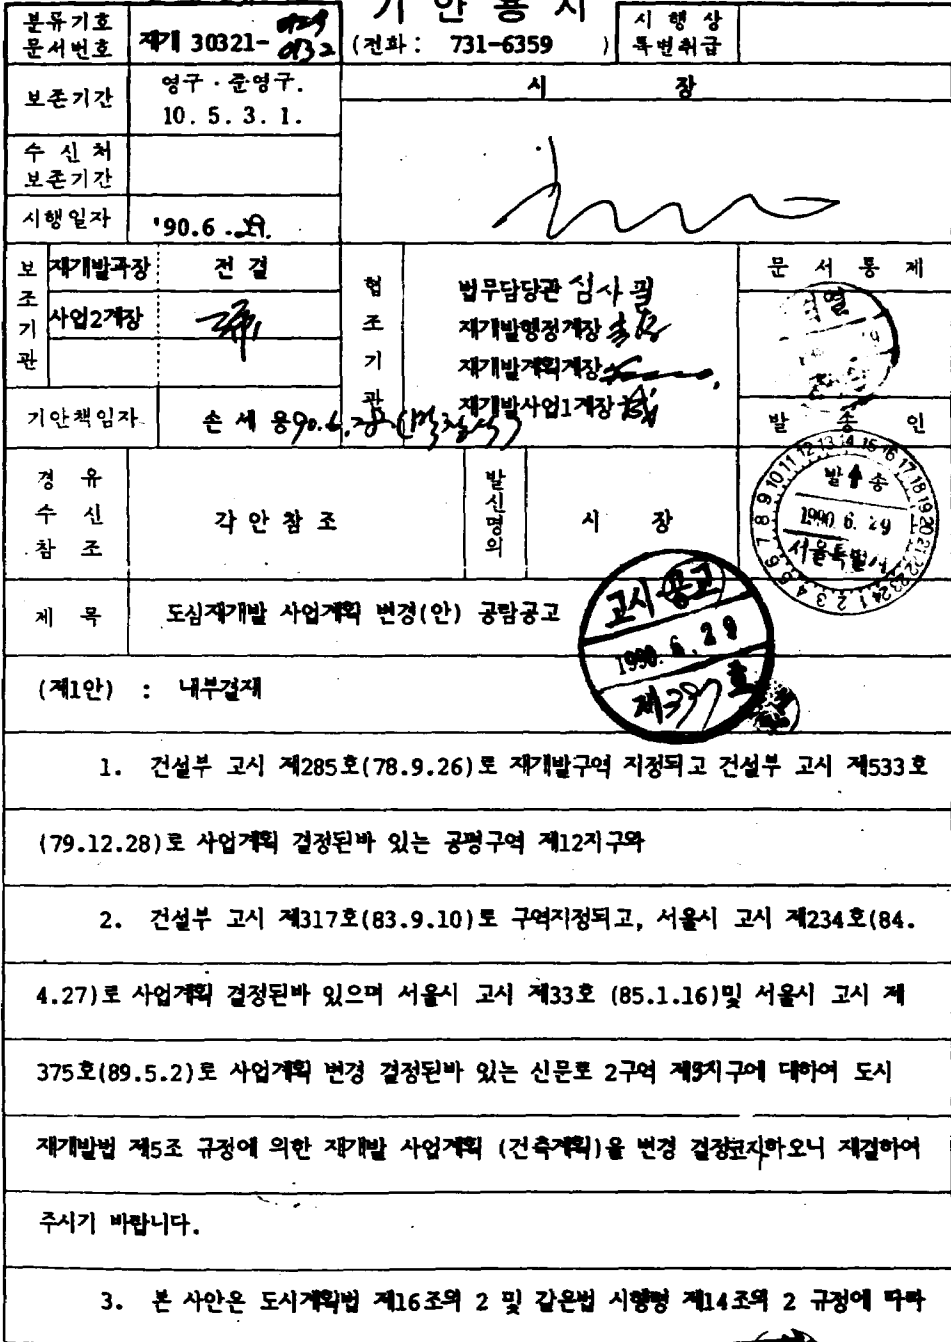 기 안 용 지
분류기호
문서번호
재개 30321-
(전화 : 731-6359 )
시 행 상
특별취급
보존기간
영구 · 준영구.
10. 5. 3. 1.
시 장
수 신 처
보존기간
시행일자
'90.6 .29.
보 조 기 관
재개발과장
전 결
사업2계장
협 조 기 관
법무담당관 심사필
재개발행정계장
재개발계획계장
재개발사업1계장
문 서 통 제
기안책임자
손 세 용
90.6.
발 송 인
경 유
수 신
참 조
각 안 참 조
발신명의
시 장
발 송
1990. 6. 29
서울특별시
제 목
도심재개발 사업계획 변경(안) 공람공고
고시·공고
1990. 6. 29
제397호
(제1안) : 내부결재
1. 건설부 고시 제285호(78.9.26)로 재개발구역 지정되고 건설부 고시 제533호
(79.12.28)로 사업계획 결정된바 있는 공평구역 제12지구와
2. 건설부 고시 제317호(83.9.10)로 구역지정되고, 서울시 고시 제234호(84.
4.27)로 사업계획 결정된바 있으며 서울시 고시 제33호 (85.1.16)및 서울시 고시 제
375호(89.5.2)로 사업계획 변경 결정된바 있는 신문로 2구역 제3지구에 대하여 도시
재개발법 제5조 규정에 의한 재개발 사업계획 (건축계획)을 변경 결정코자하오니 재결하여
주시기 바랍니다.
3. 본 사안은 도시계획법 제16조의 2 및 같은법 시행령 제14조의 2 규정에 따라